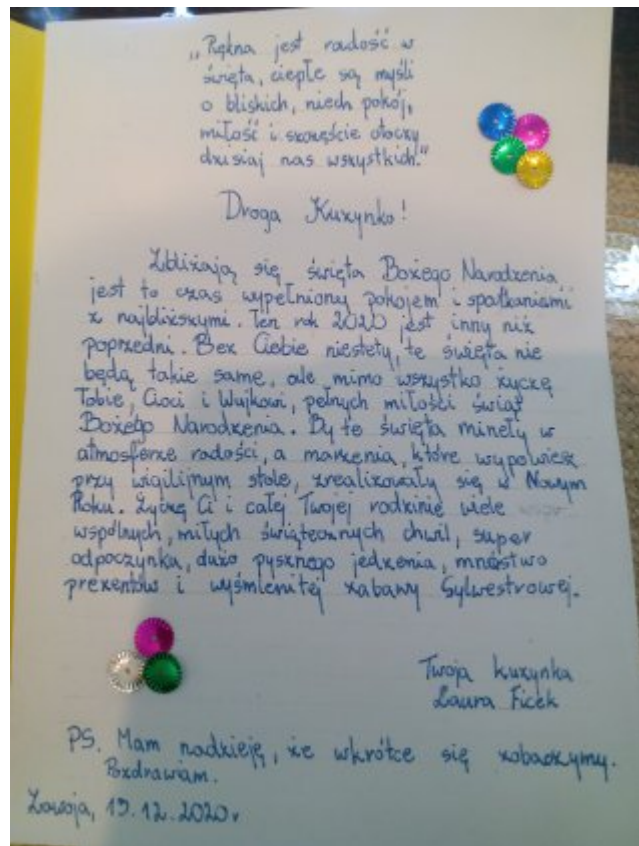 „Piękna jest radość w
święta, ciepłe są myśli
o bliskich, niech pokój,
miłość i szczęście otoczy
dzisiaj nas wszystkich."
Droga Kuzynko!
Zbliżają się święta Bożego Narodzenia
jest to czas wypełniony pokojem i spotkaniami
z najbliższymi. Ten rok 2020 jest inny niż
poprzedni. Bez Ciebie niestety, te święta nie
będą takie same, ale mimo wszystko życzę
Tobie, Cioci i Wujkowi, pełnych miłości świąt
Bożego Narodzenia. By te święta minęły w
atmosferze radości, a marzenia, które wypowiesz
przy wigilijnym stole, zrealizowały się w Nowym
Roku. Życzę Ci i całej Twojej rodzinie wiele
wspólnych, miłych świątecznych chwil, super
odpoczynku, dużo pysznego jedzenia, mnóstwo
prezentów i wyśmienitej zabawy Sylwestrowej.
Twoja kuzynka
Laura Ficek
PS. Mam nadzieję, że wkrótce się zobaczymy.
Pozdrawiam.
Zawoja, 19.12.2020r